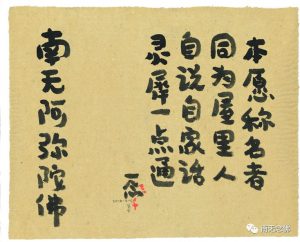 本愿称名者
同为屋里人
自说自家话
灵犀一点通
南无阿弥陀佛